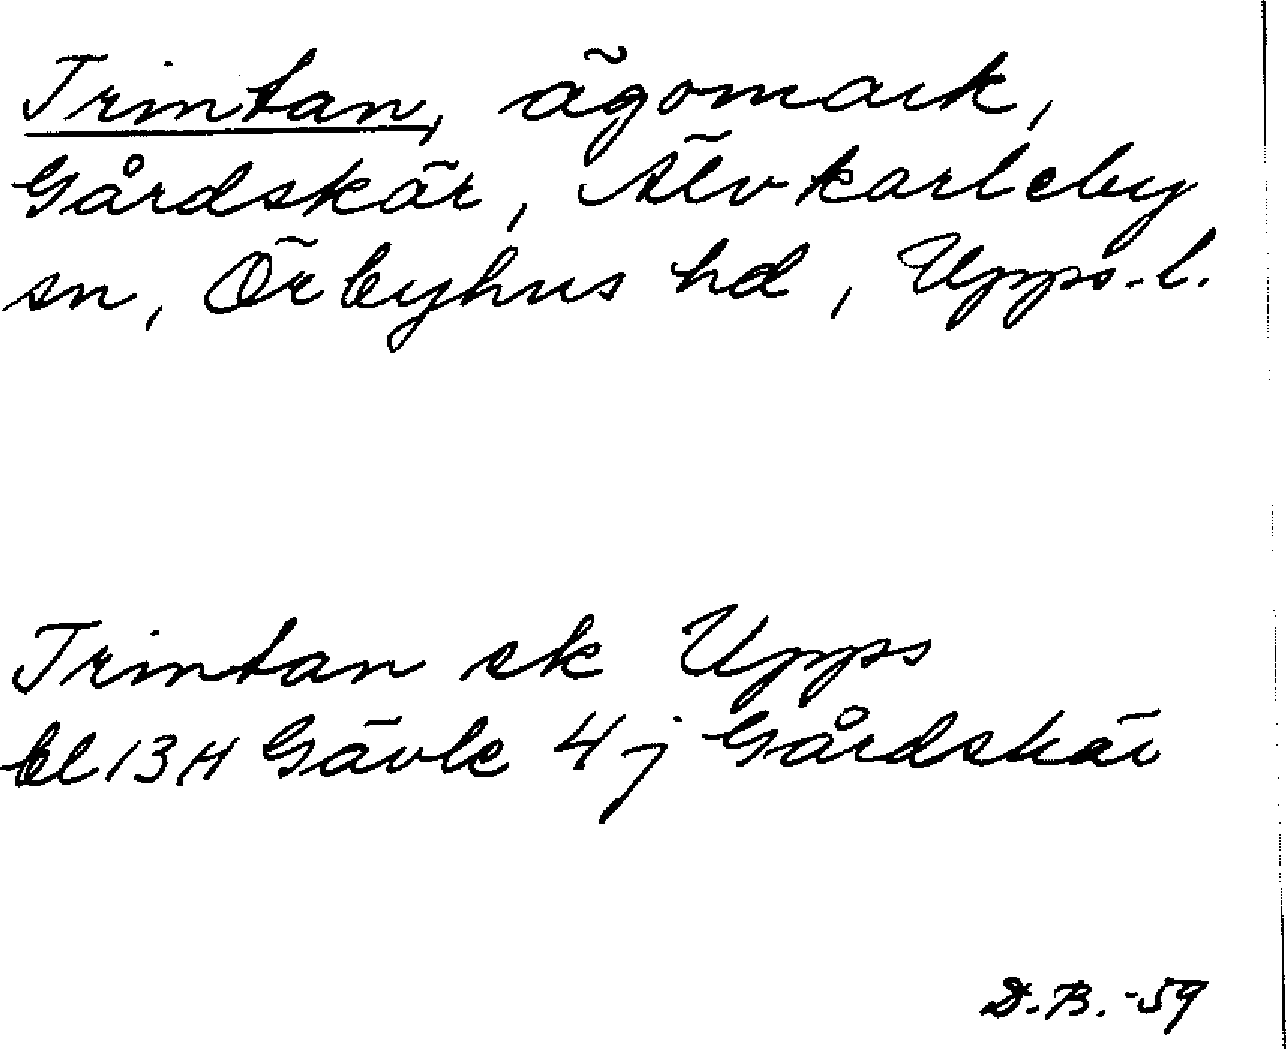 Trintan, ägomark,
Gårdskär, Älvkarleby
sn, Örbyhus hd, Upps. l.
Trintan ek Upps
bl 13H Gävle 4j Gårdskär
D.B. -59